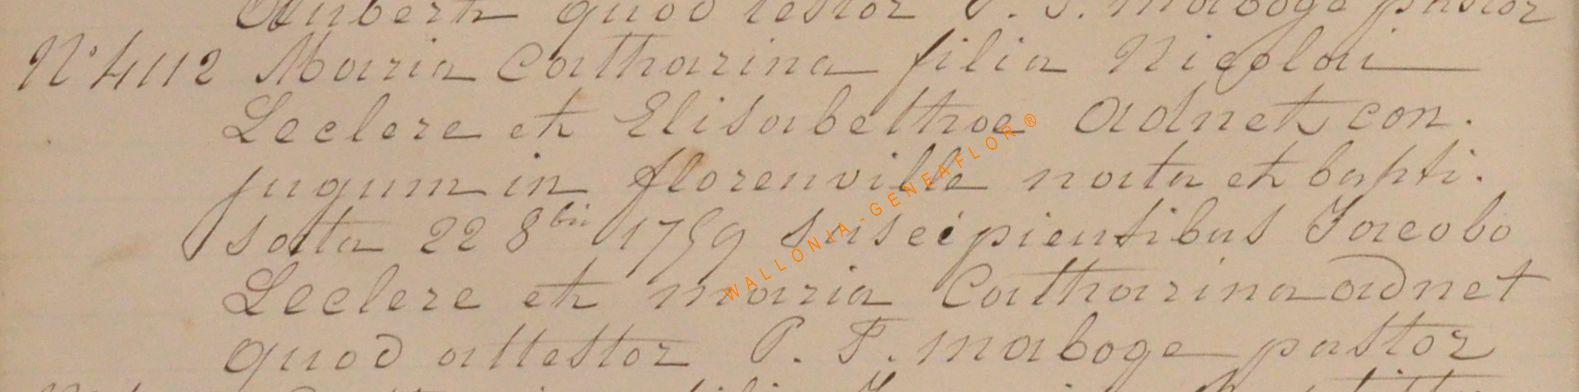 Aubert quod testor P. F. maboge pastor
N° 4112 Maria Catharina filia Nicolai
Leclere et Elisabethae Adnet con.
jugum in florenville nata et bapti.
sata 22 8bris 1759 suscipientibus Jacobo
Leclere et maria Catharina adnet
quod attestor P. F. maboge pastor
WALLONIA-GENEAFLOR ®